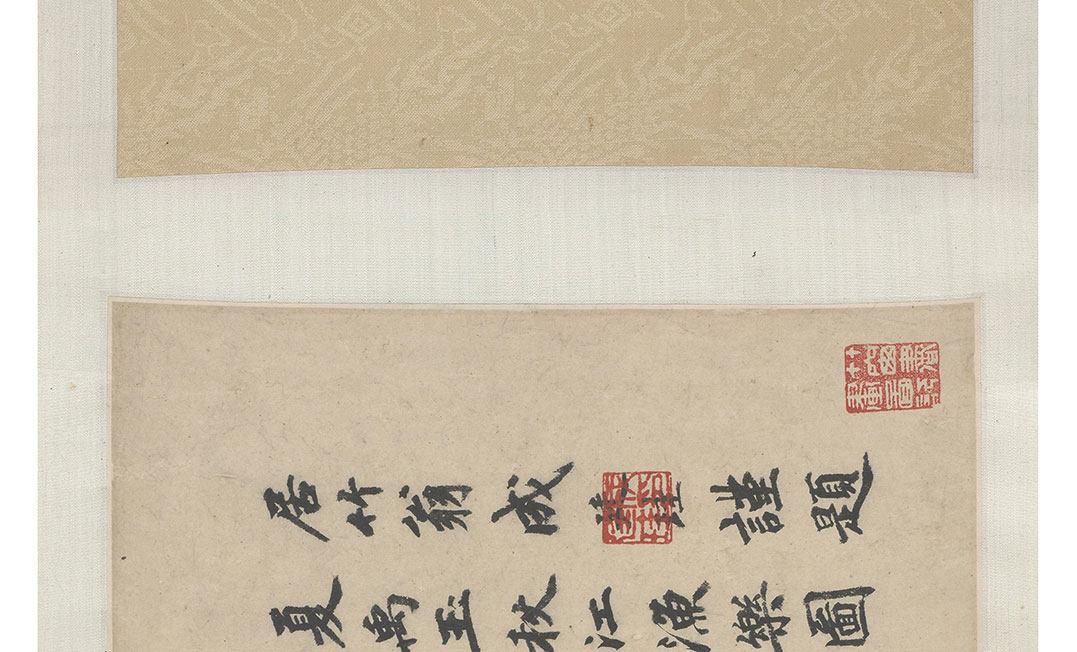 居竹翁成謹題
夏禹玉秋江漁樂圖